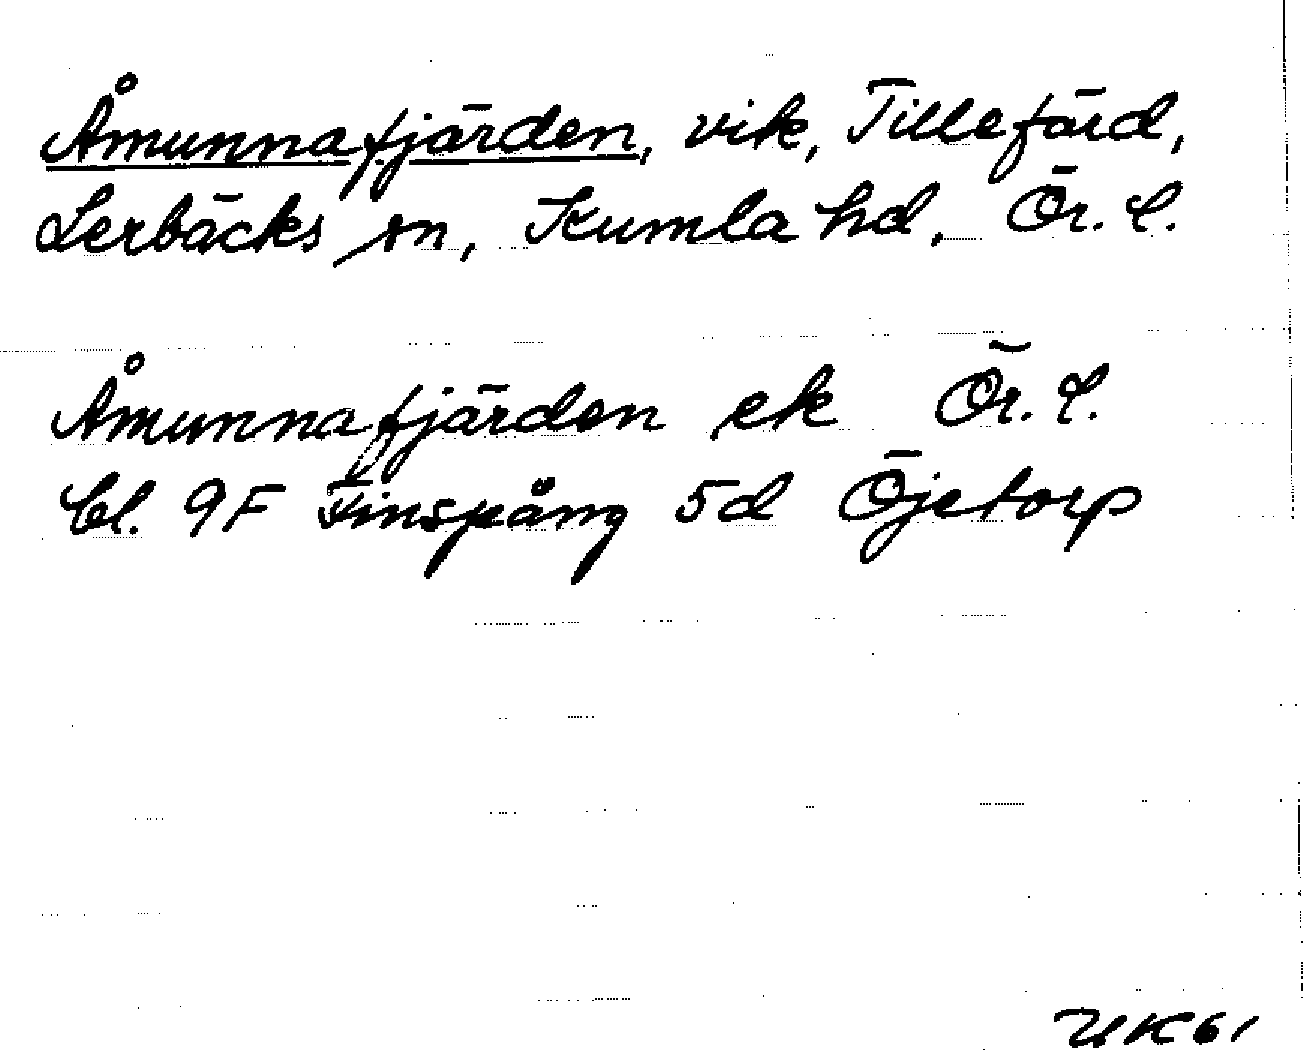 Åmunnafjärden, vik, Tillefärd,
Lerbäcks sn, Kumla hd, Ör. l.
Åmunnafjärden ek Ör. l.
bl. 9F Finspång 5d Öjetorp
UK61